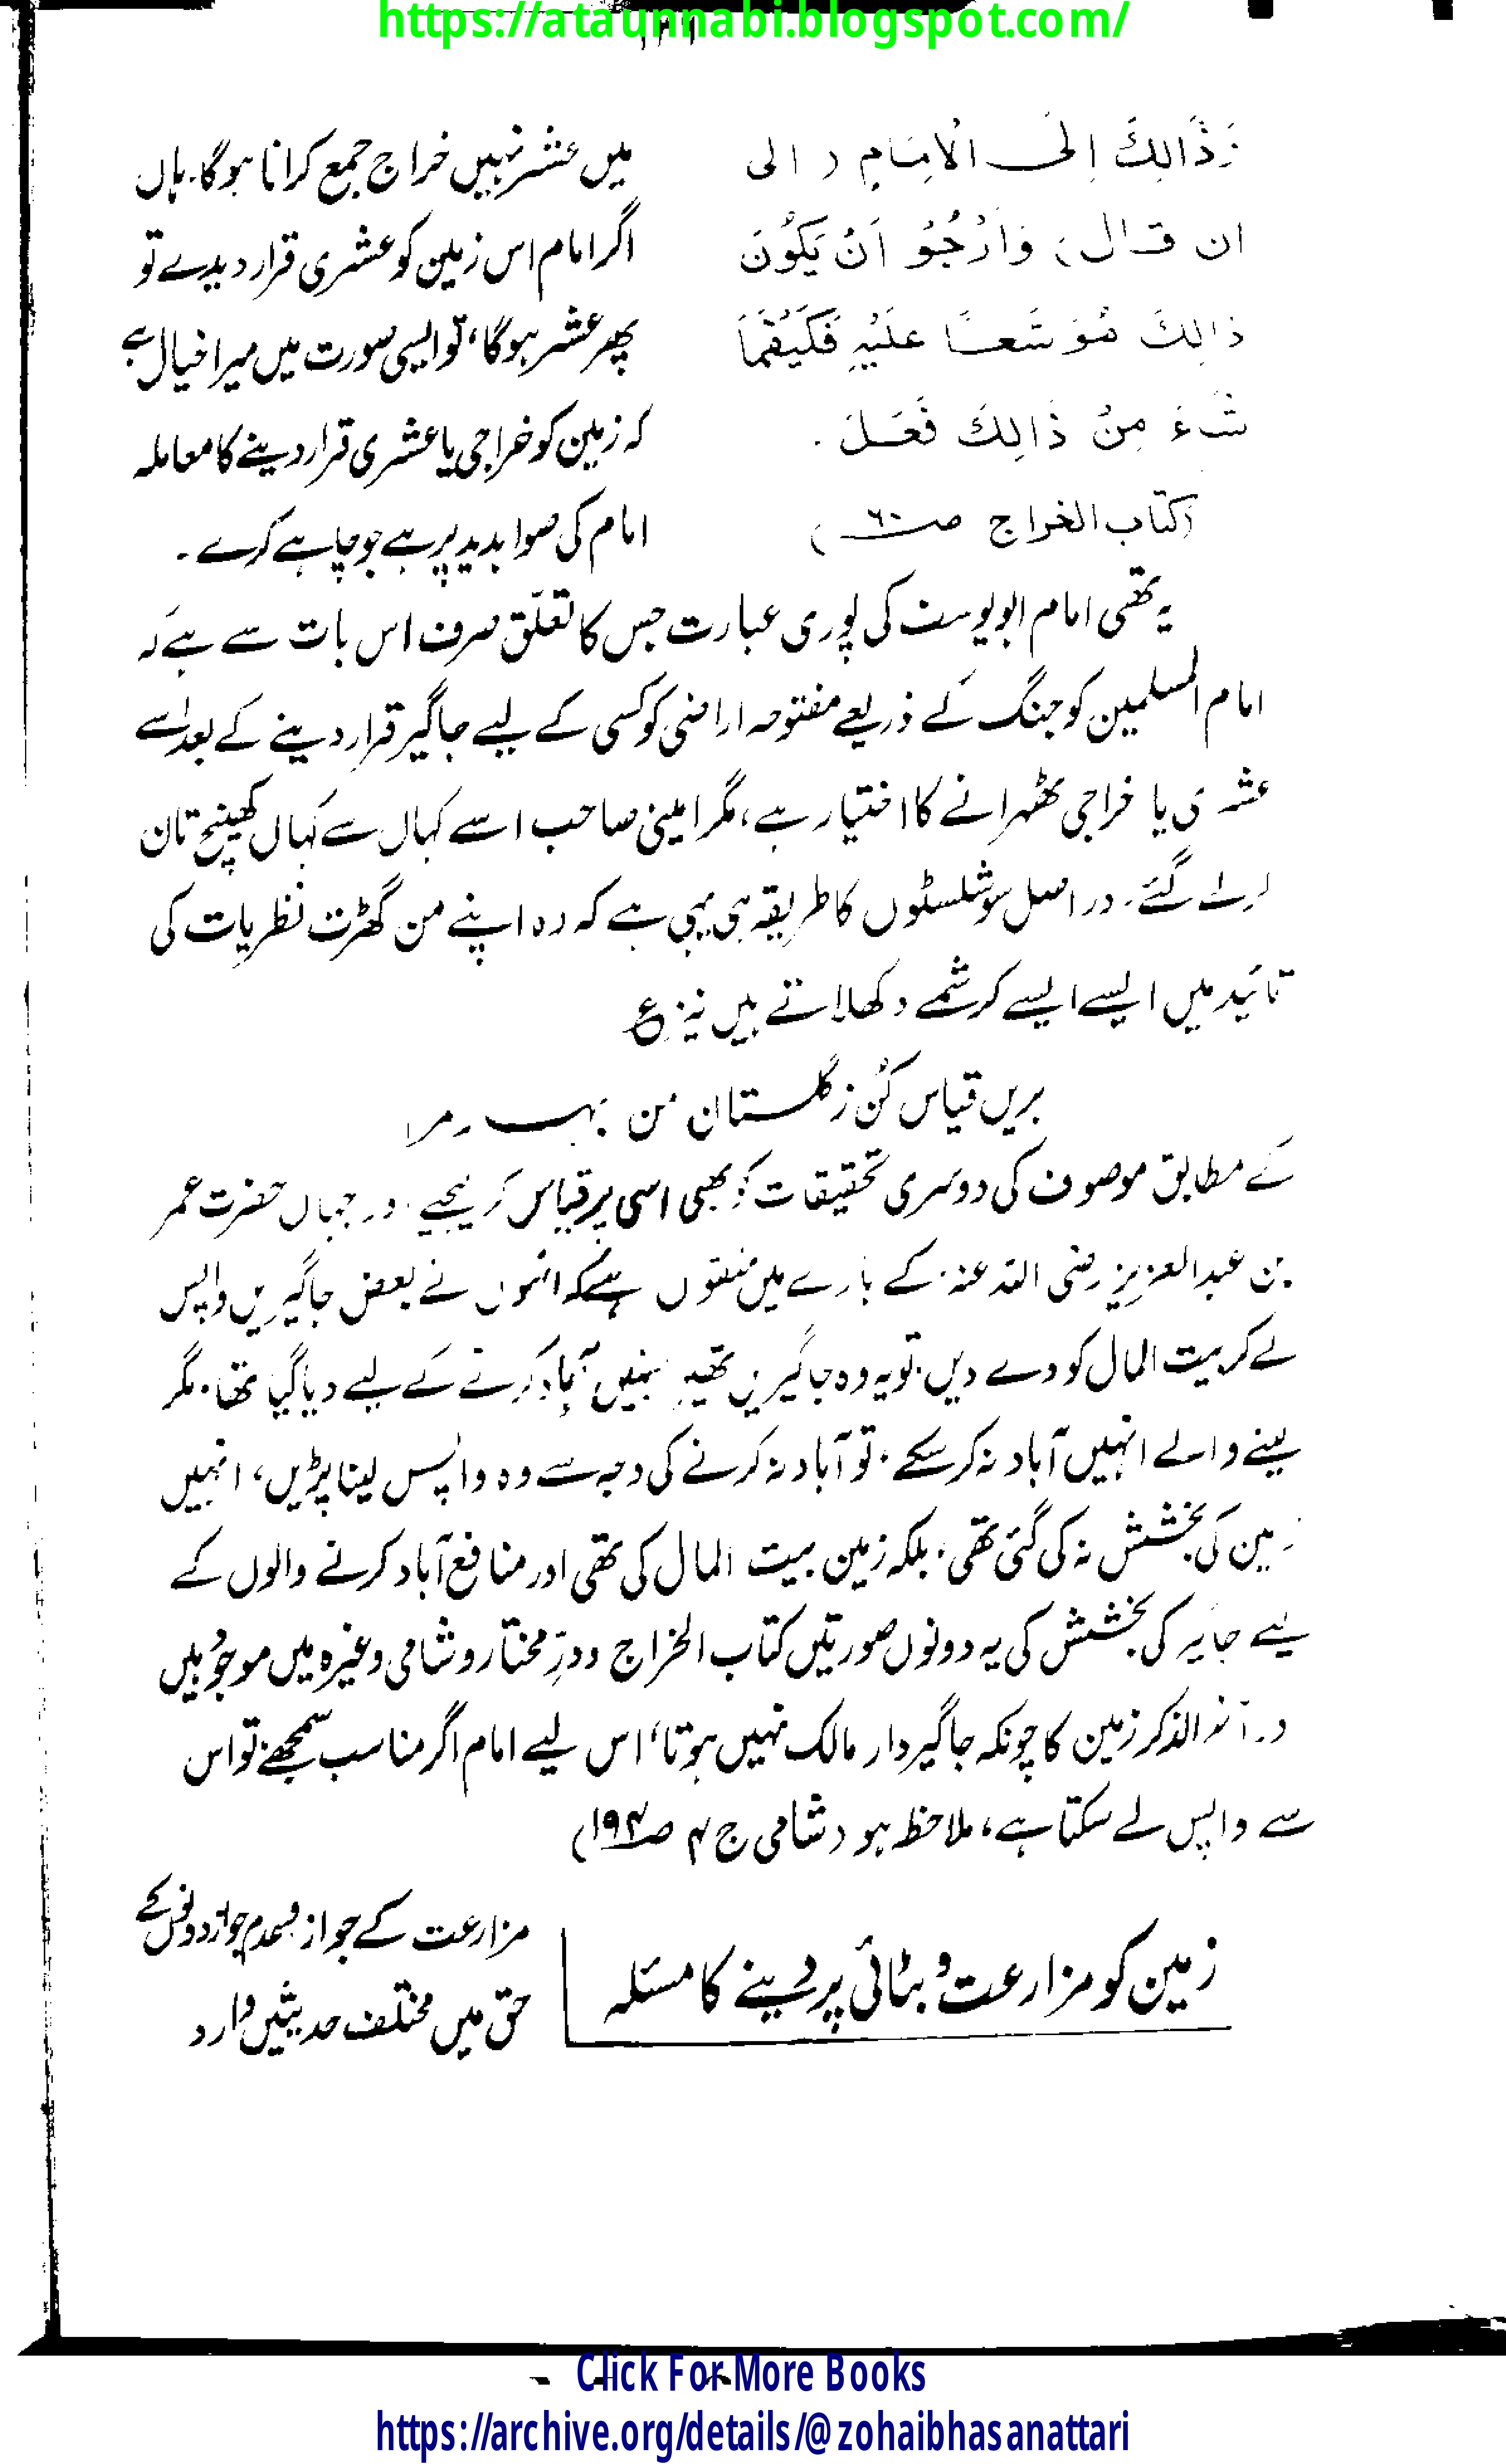 https://ataunnabi.blogspot.com/
وَذَالِكَ اِلَى الْاِمَامِ ( الی
ان قال) وَاَرْجُوْ اَنْ يَكُوْنَ
ذَالِكَ مُوَسَّعًا عَلَيْهِ فَكَيْفَمَا
شَاءَ مِنْ ذَالِكَ فَعَلَ .
(کتاب الخراج صـ٦٠)
میں عشر نہیں خراج جمع کرانا ہوگا. ہاں
اگر امام اس زمین کو عشری قرار دیدے تو
پھر عشر ہوگا، تو ایسی صورت میں میرا خیال ہے
کہ زمین کو خراجی یا عشری قرار دینے کا معاملہ
امام کی صوابدید پر ہے جو چاہے کرے ۔
یہ تھی امام ابویوسف کی پوری عبارت جس کا تعلّق صرف اس بات سے ہے کہ
امام المسلمین کو جنگ کے ذریعے مفتوحہ اراضی کو کسی کے لیے جاگیر قرار دینے کے بعد اسے
عشری یا خراجی ٹھہرانے کا اختیار ہے، مگر امینی صاحب اسے کہاں سے کہاں کھینچ تان
گئے. دراصل سوشلسٹوں کا طریقہ ہی یہی ہے کہ وہ اپنے من گھڑت نظریات کی
تائید میں ایسے ایسے کرشمے دکھلاتے ہیں نیز ع
بریں قیاس کُن ز گلستان من بہار مرا
کے مطابق موصوف کی دوسری تحقیقات کو بھی اسی پر قیاس کر لیجیے. اور جہاں حضرت عمر
بن عبدالعزیز رضی اللہ عنہ کے بارے میں منقول ہے کہ انہوں نے بعض جاگیریں واپس
لے کر بیت المال کو دے دیں. تو یہ وہ جاگیریں تھیں جنہیں آباد کرنے کے لیے دیا گیا تھا. مگر
لینے والے انہیں آباد نہ کر سکے. تو آباد نہ کرنے کی وجہ سے وہ واپس لینا پڑیں، انہیں
زمین کی بخشش نہ کی گئی تھی. بلکہ زمین بیت المال کی تھی اور منافع آباد کرنے والوں کے
لیے جاگیر کی بخشش کی یہ دونوں صورتیں کتاب الخراج و درِّ مختار و شامی وغیرہ میں موجود ہیں
اور آخر الذکر زمین کا چونکہ جاگیردار مالک نہیں ہوتا، اس لیے امام اگر مناسب سمجھے تو اس
سے واپس لے سکتا ہے، ملاحظہ ہو (شامی ج ۴ صـ۱۹۴)
زمین کو مزارعت و بٹائی پر دینے کا مسئلہ
مزارعت کے جواز و عدم جواز دونوں کے
حق میں مختلف حدیثیں وارد
Click For More Books
https://archive.org/details/@zohaibhasanattari